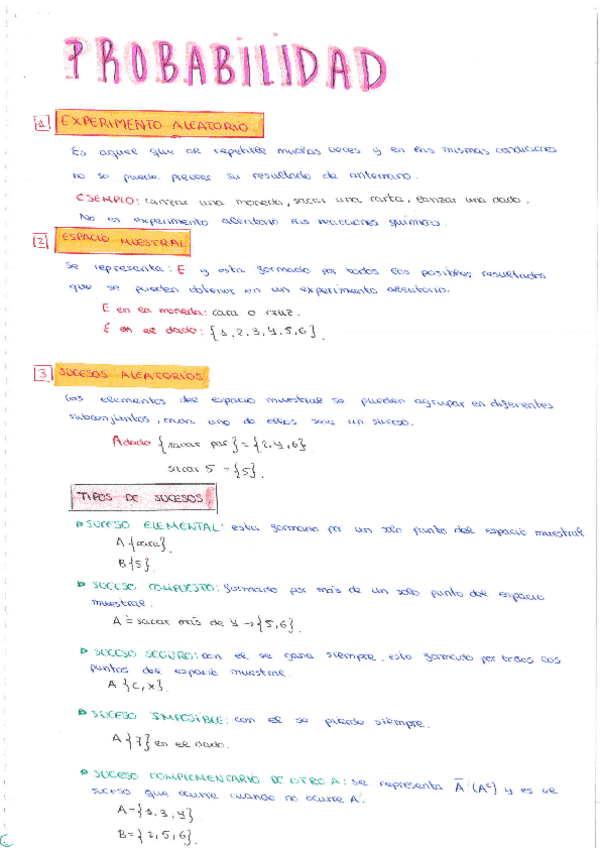 PROBABILIDAD
1 EXPERIMENTO ALEATORIO.
Es aquel que al repetirle muchas veces y en las mismas condiciones
no se puede prever su resultado de antemano.
EJEMPLO: lanzar una moneda, sacar una carta, lanzar una dado.
No es experimento aleatorio las reacciones químicas
2 ESPACIO MUESTRAL
se representa: E y esta formado por todos los posibles resultados
que se pueden obtener en un experimento aleatorio.
E en la moneda: cara o cruz.
E en el dado: {1,2,3,4,5,6}.
3 SUCESOS ALEATORIOS
Los elementos del espacio muestral se pueden agrupar en diferentes
subconjuntos, cada uno de ellos será un suceso.
A dado {sacar par} = {2,4,6}
sacar 5 = {5}.
TIPOS DE SUCESOS
SUCESO ELEMENTAL: esta formado por un solo punto del espacio muestral
A {cara}.
B {5}.
SUCESO COMPUESTO: formado por más de un solo punto del espacio
muestral.
A = sacar más de 4 → {5,6}.
SUCESO SEGURO: con el se gana siempre, esta formado por todos los
puntos del espacio muestral.
A {C,X}.
SUCESO IMPOSIBLE: con el se pierde siempre.
A {7} en el dado.
SUCESO COMPLEMENTARIO DE OTRO A: se representa Ā (Aᶜ) y es el
suceso que ocurre cuando no ocurre A.
A={1,3,4}
B={2,5,6}.